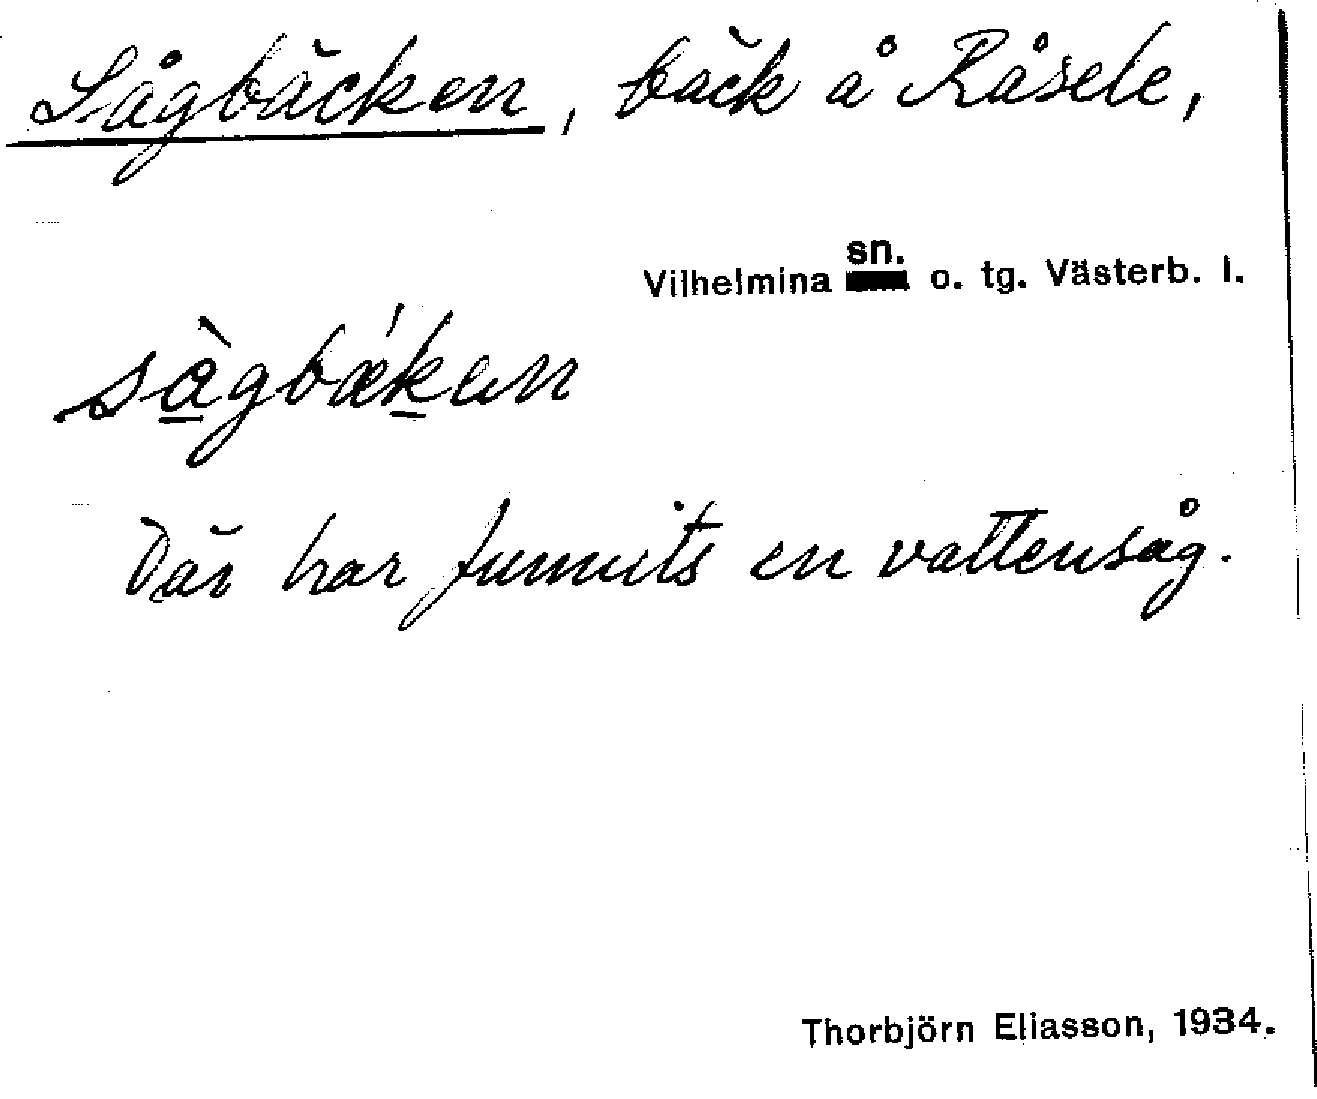 Sågbäcken, bäck å Råsele,
Vilhelmina sn. o. tg. Västerb. l.
sàgbǽkan
Där har funnits en vattensåg.
Thorbjörn Eliasson, 1934.